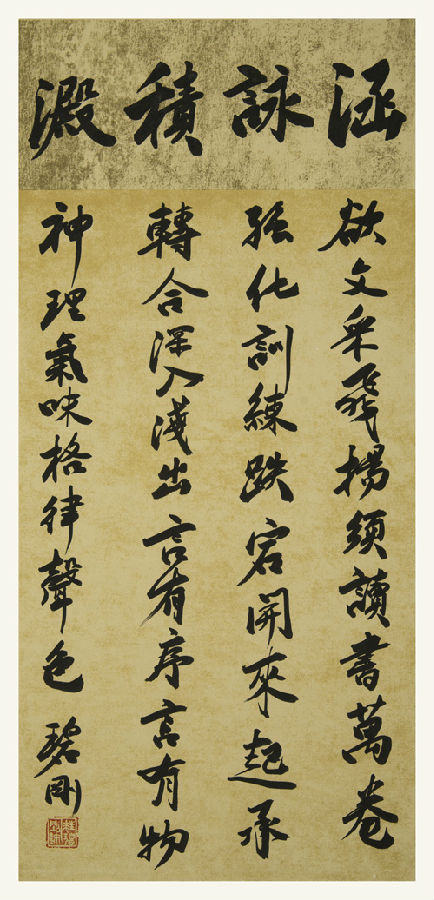 涵詠積澱
欲文采飛揚須讀書萬卷
強化訓練跌宕開來起承
轉合深入淺出言有序言有物
神理氣味格律聲色
碧剛